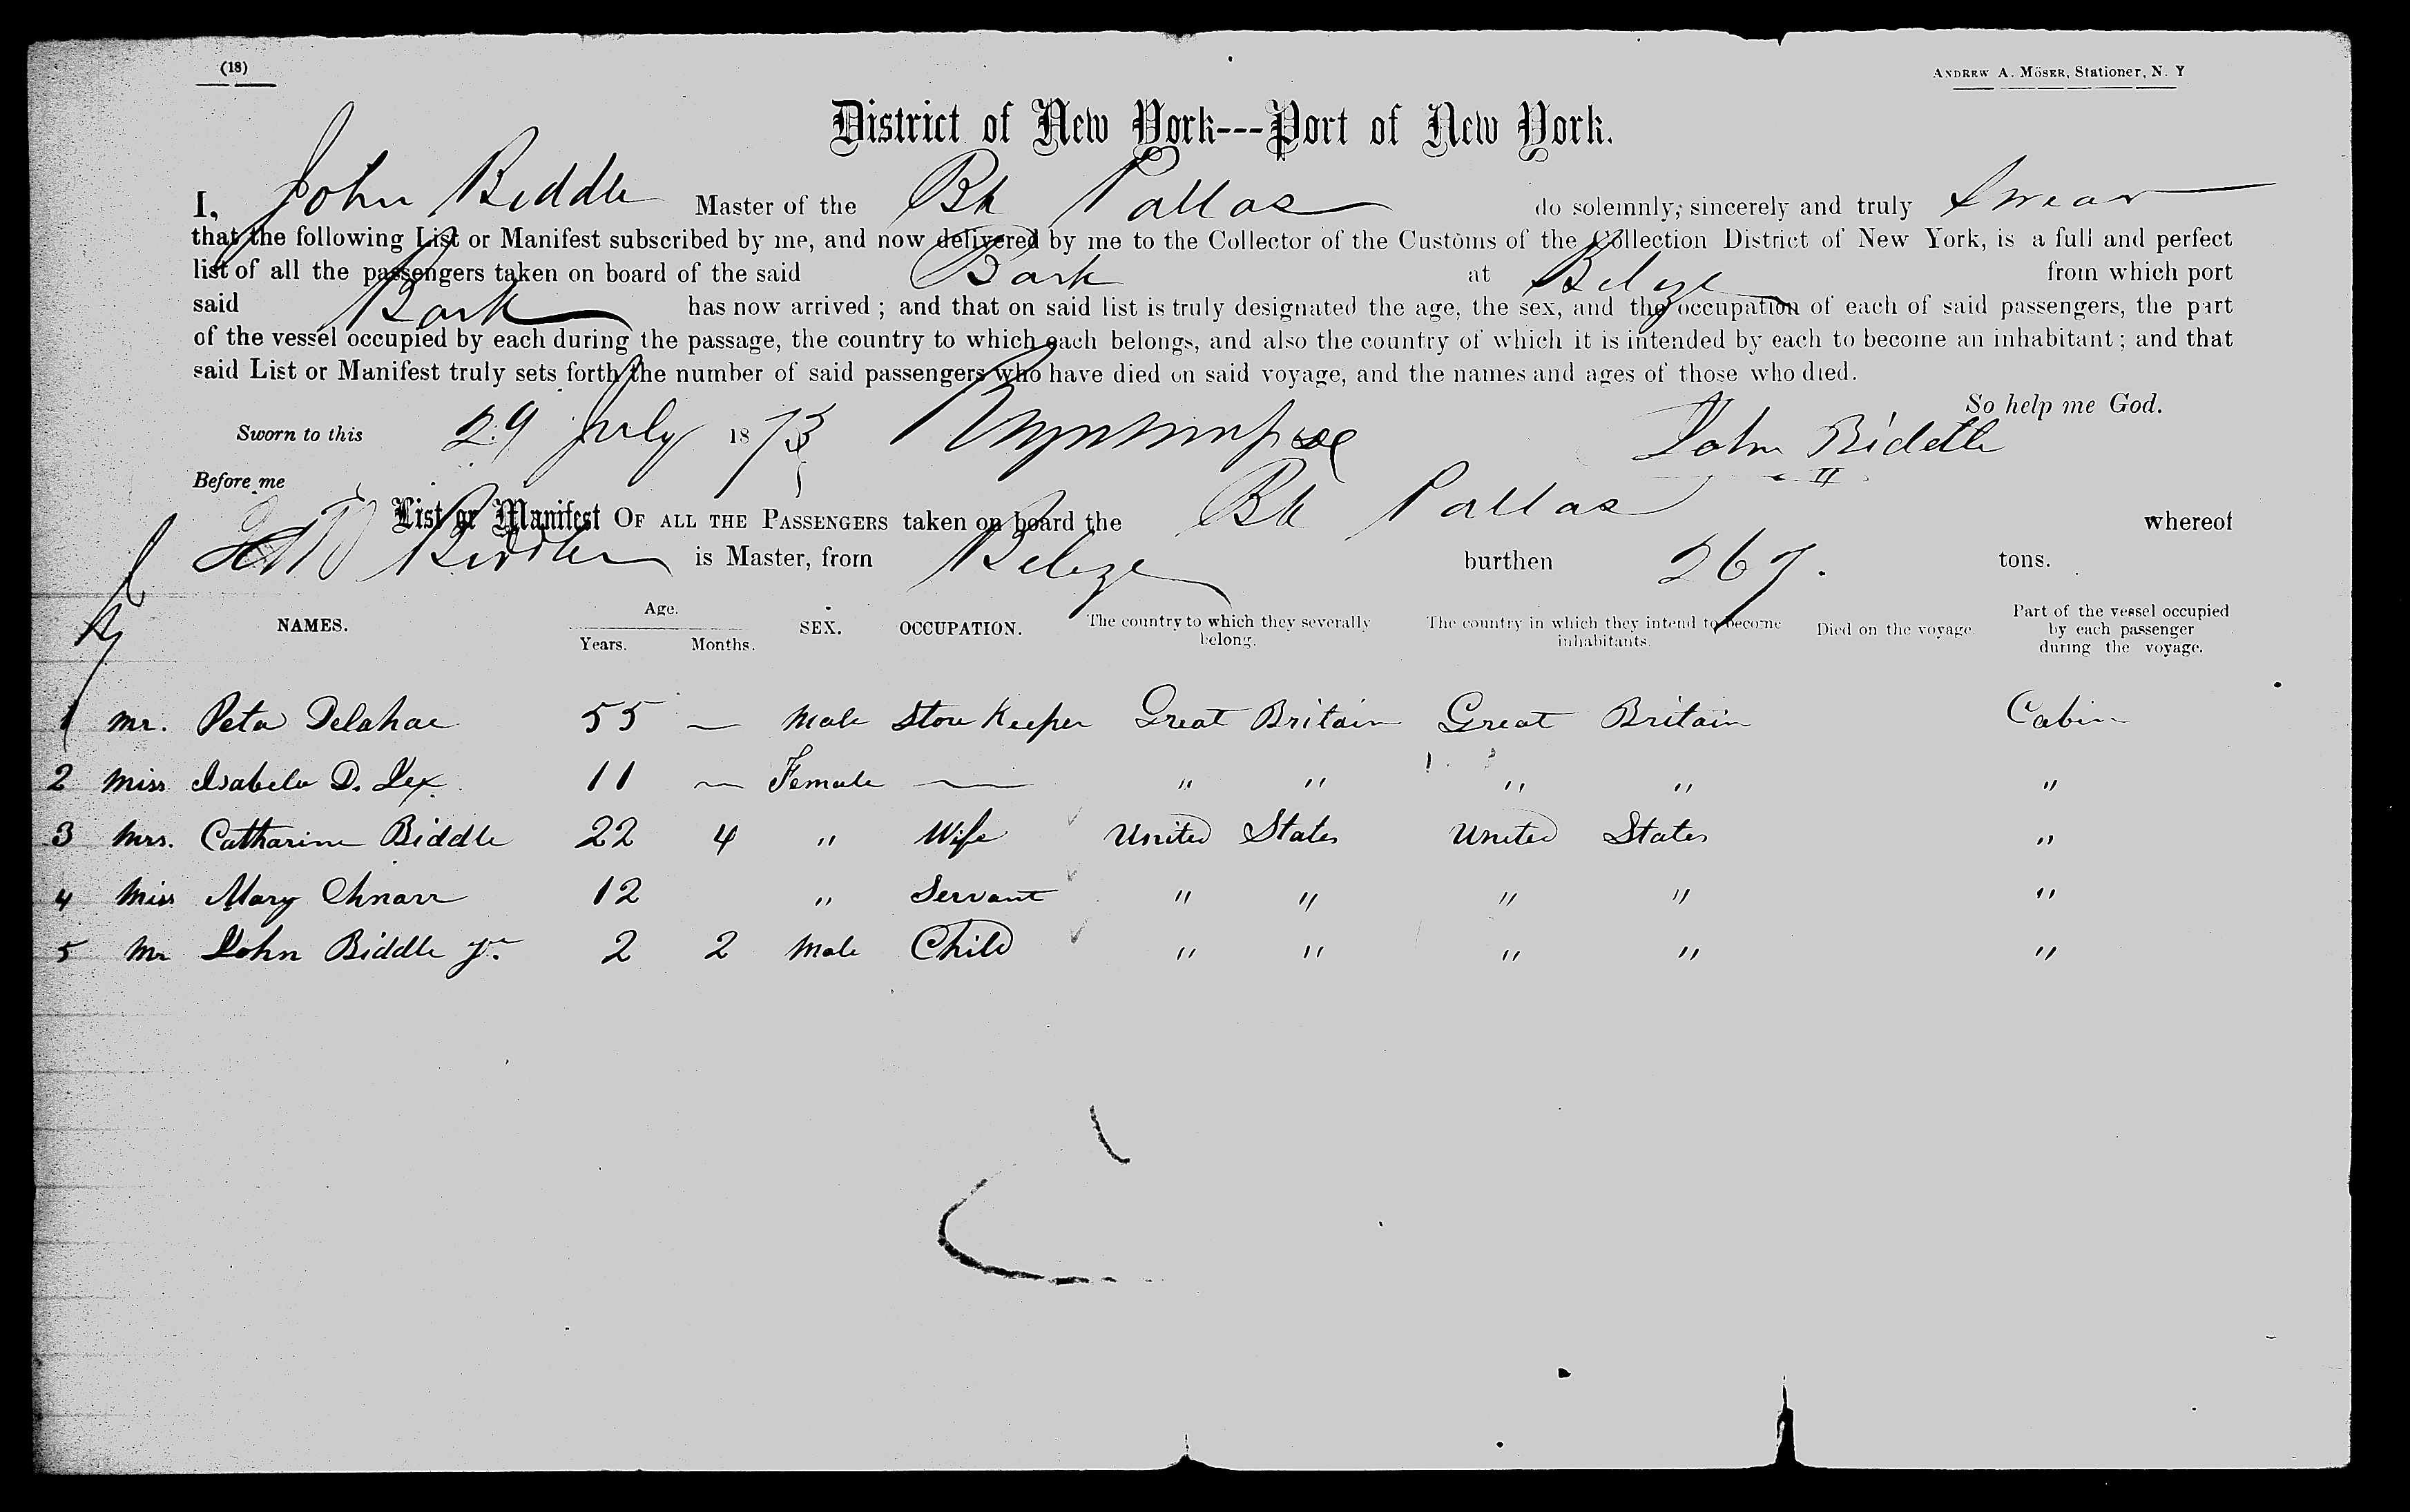 (18)
ANDREW A. MÖSER, Stationer, N. Y
District of New York---Port of New York.
I, John Biddle Master of the Bk Pallas do solemnly, sincerely and truly swear
that the following List or Manifest subscribed by me, and now delivered by me to the Collector of the Customs of the Collection District of New York, is a full and perfect
list of all the passengers taken on board of the said Bark at Belize from which port
said Bark has now arrived ; and that on said list is truly designated the age, the sex, and the occupation of each of said passengers, the part
of the vessel occupied by each during the passage, the country to which each belongs, and also the country of which it is intended by each to become an inhabitant ; and that
said List or Manifest truly sets forth the number of said passengers who have died on said voyage, and the names and ages of those who died.
So help me God.
Sworn to this 29 July 1873 John Biddle
Before me
List or Manifest OF ALL THE PASSENGERS taken on board the Bk Pallas whereof
is Master, from Belize burthen 267. tons.
NAMES. Age. Years. Months. SEX. OCCUPATION. The country to which they severally belong. The country in which they intend to become inhabitants. Died on the voyage. Part of the vessel occupied by each passenger during the voyage.
1 Mr. Peter Delahae 55 — Male Store Keeper Great Britain Great Britain Cabin
2 Miss Isabela D. Lex 11 — Female — " " " " "
3 Mrs. Catharine Biddle 22 4 " Wife United States United States "
4 Miss Mary 12 " Servant " " " " "
5 Mr John Biddle Jr. 2 2 Male Child " " " " "